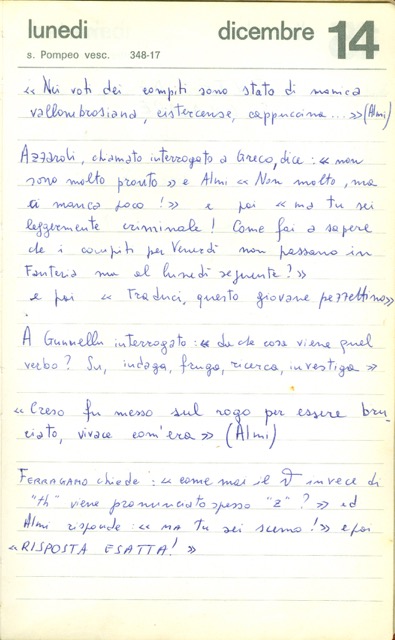 lunedì dicembre 14
s. Pompeo vesc. 348-17
« Nei voti dei compiti sono stato di manica
vallombrosiana, cistercense, cappuccina... » (Almi)
AZZAROLI, chiamato interrogato a Greco, dice: « non
sono molto pronto » e Almi « Non molto, ma
ci manca poco! » e poi « ma tu sei
leggermente criminale! Come fai a sapere
che i compiti per Venerdì non passano in
Fanteria ma al lunedì seguente? »
e poi « Traduci, questo giovane pezzettino »
A Gunnella interrogato: « da che cosa viene quel
verbo? Su, indaga, fruga, ricerca, investiga »
« Creso fu messo sul rogo per essere bru-
ciato, vivace com'era » (Almi)
FERRAGAMO chiede: « come mai il ϑ invece di
"th" viene pronunciato spesso "z"? » ed
Almi risponde: « MA tu sei scemo! » e poi
« RISPOSTA ESATTA! »